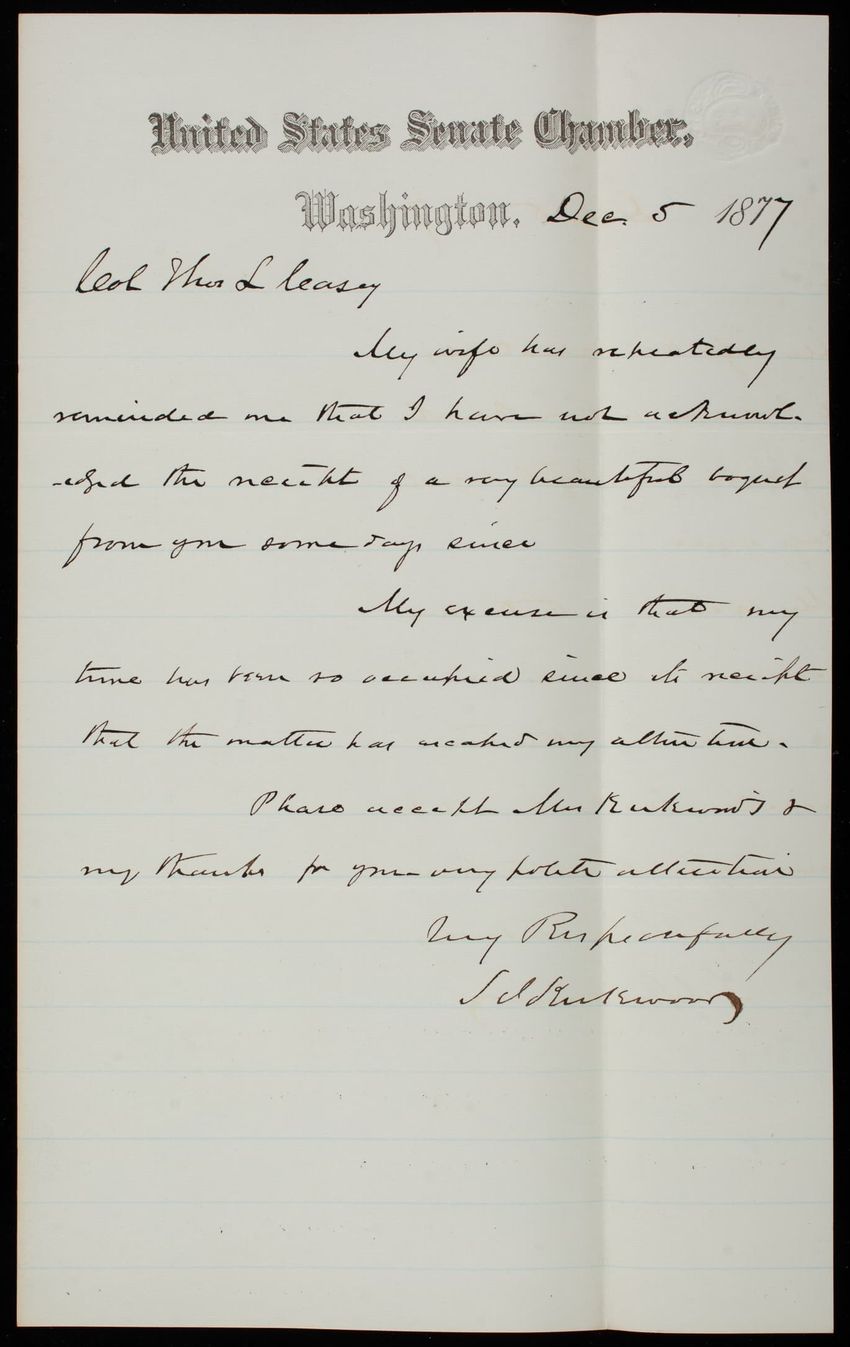 United States Senate Chamber,
Washington, Dec. 5 1877
Col Thos L Casey
My wife has repeatedly
reminded me that I have not acknowl-
-edged the receipt of a very beautiful boquet
from you some days since
My excuse is that my
time has been so occupied since its receipt
that the matter has escaped my attention.
Please accept Mrs Kirkwood's &
my thanks for your very polite attention
Very Respectfully
S J Kirkwood